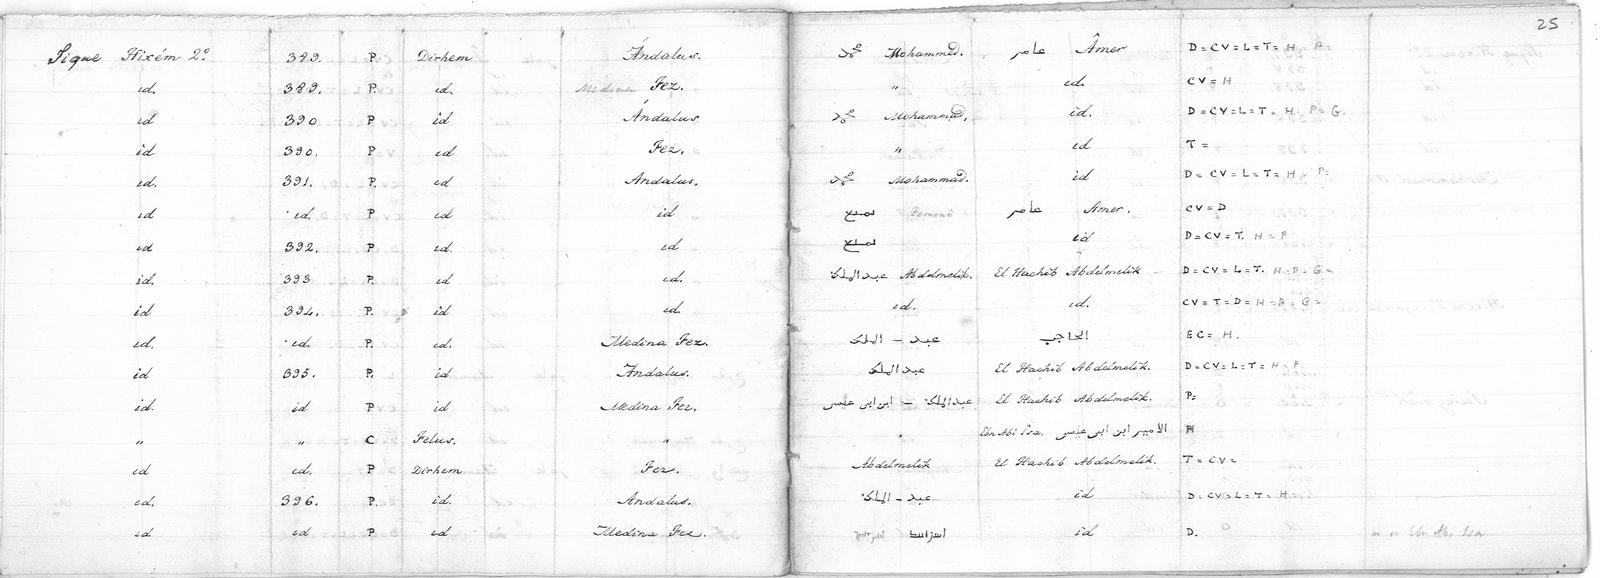 25
Sigue Hixém 2º 389. P. Dirhem Ándalus. محمد Mohammad. عامر Âmer D=CV=L=T= H= P=
id. 389. P. id. Medina Fez. " id. CV=H
id 390 P id Ándalus محمد Mohammad. id. D=CV=L=T= H= P=G.
id 390. P id Fez. " id T=
id. 391. P. id Andalus. محمد Mohammad. id D=CV=L=T=H= P=
id id. P id id عامر Amer. CV=D
id 392. P id. id id D=CV=T. H=P
id. 393 P id id. عبد الملك Abdelmelik. El Hachib Abdelmelik D=CV=L=T. H=P=G=
id 394. P. id id. id. id. CV=T=D=H=P=G=
id. id. P. id. Medina Fez. عبد - الملك الحاجب EC= H.
id 395. P. id Ándalus. عبد الملك El Hachib Abdelmelik. D=CV=L=T=H=P
id. id P id Medina Fez. عبد الملك - ابن ابى عيسى El Hachib Abdelmelik. P=
" " C Felus. " Ebn Abi Isa. الامير ابن ابى عيسى H
id id. P Dirhem Fez. Abdelmelik El Hachib Abdelmelik. T=CV=
id. 396. P. id. Andalus. عبد - الملك id D=CV=L=T=H=
id id P id Medina Fez. id D. Ebn Abi Isa